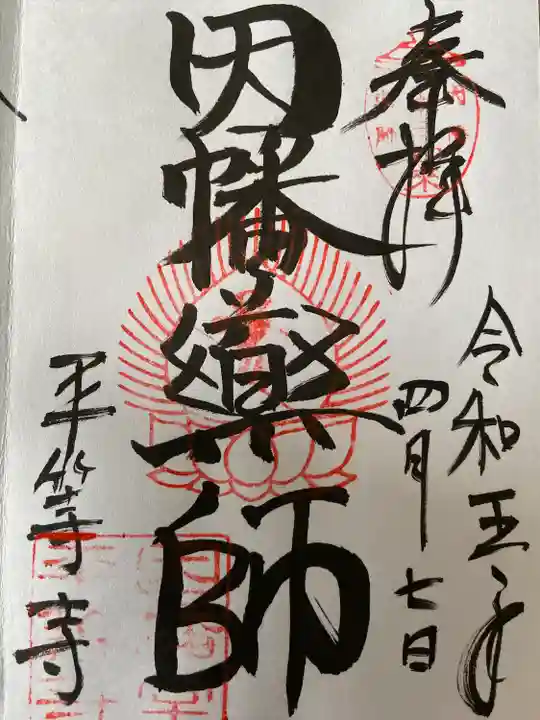 奉拝
令和五年
四月七日
因幡薬師
平等寺